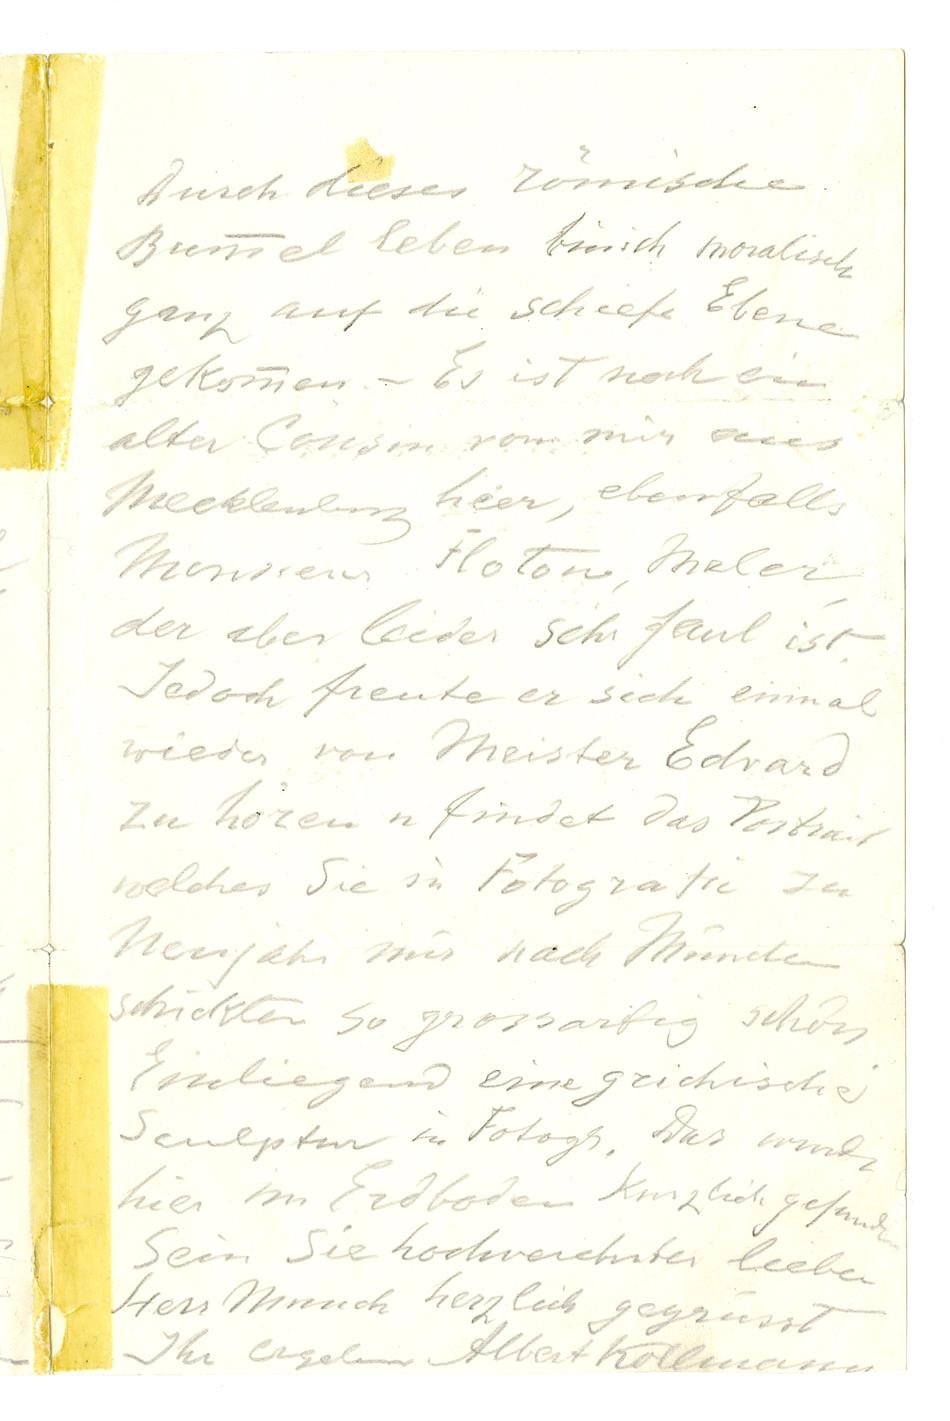 Durch dieses römische
Brum̅el leben binich moralisch
ganz auf die schiefe Ebene
gekom̅en – Es ist noch ein
alter Cousin von mir aus
Mecklenburg hier, ebenfalls
Monsieur Flotow, Maler,
der aber leider sehr faul ist.
Jedoch freute er sich einmal
wieder von Meister Edvard
zu hören u findet das Portrait
welches Sie in Fotografie zu
Neujahr mir nach München
schickten so grossartig schön
Einliegend eine grichische
Sculptur in Fotogr. Das wurde
hier im Erdboden kurzlich gefunden
Sein Sie hochverehrter lieber
Herr Munch herzlich gegrüsst
Ihr ergebn Albert Kollmann